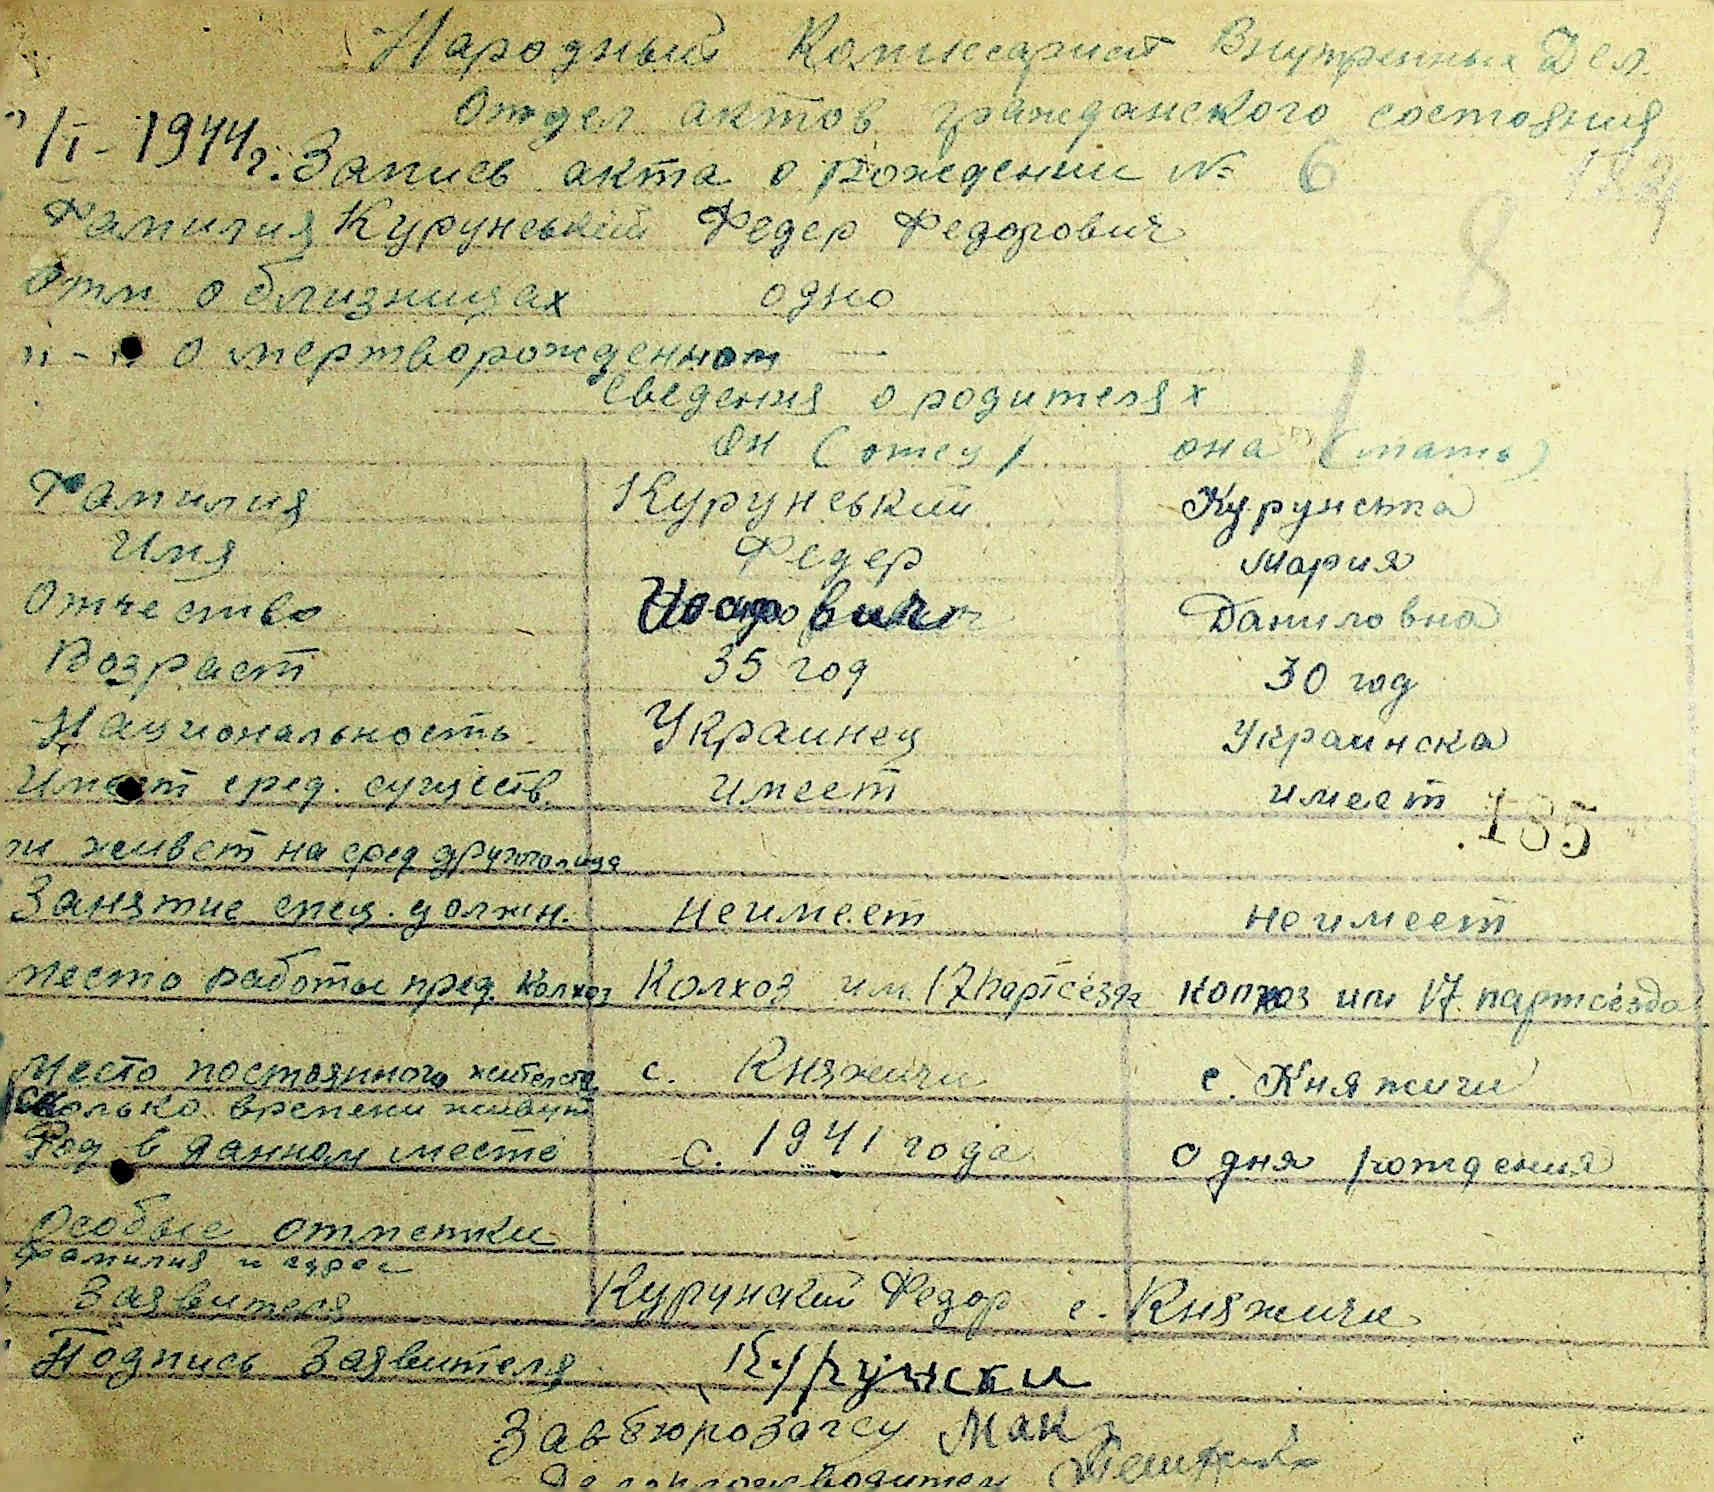 Народный Комисариат Внутренных Дел.
Отдел актов гражданского состояния
/I - 1944 г. Запись акта о Рождении № 6
Фамилия Курунський Федер Федорович
8
Отм о близницах одно
о мертворожденном —
Сведения о родителях
Он (отец) она (мать)
Фамилия Курунський Курунська
Имя Федер Мария
Отчество Даниловна
Возраст 35 год 30 год
Национальность Украинец Украинска
Имеет сред. существ. имеет имеет
185
и живет на сред другого лица
Занятие спец. должн. не имеет не имеет
место работы пред. колхоз Колхоз им. 17 партсезда колхоз им 17 партсезда
Место постоянного жительств с. Княжичи с. Княжичи
Сколько времени живут
Год в данном месте С. 1941 года с дня рождения
Особые отметки
Фамилия и адрес
Заявителя Курунский Федор с. Княжичи
Подпись Заявителя Курунски
Завбюрозагсу Мак
Делопроизводител